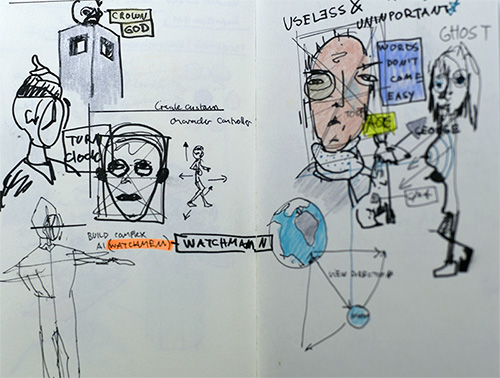 CROWN
GOD
Create custom
character controller
TURN
Clock
BUILD COMPLEX
AI WATCHMEN
WATCHMAN N
USELESS &
UNIMPORTANT
WORDS
DON'T
COME
EASY
GHOST
GEORGE
VIEW DIRECTION